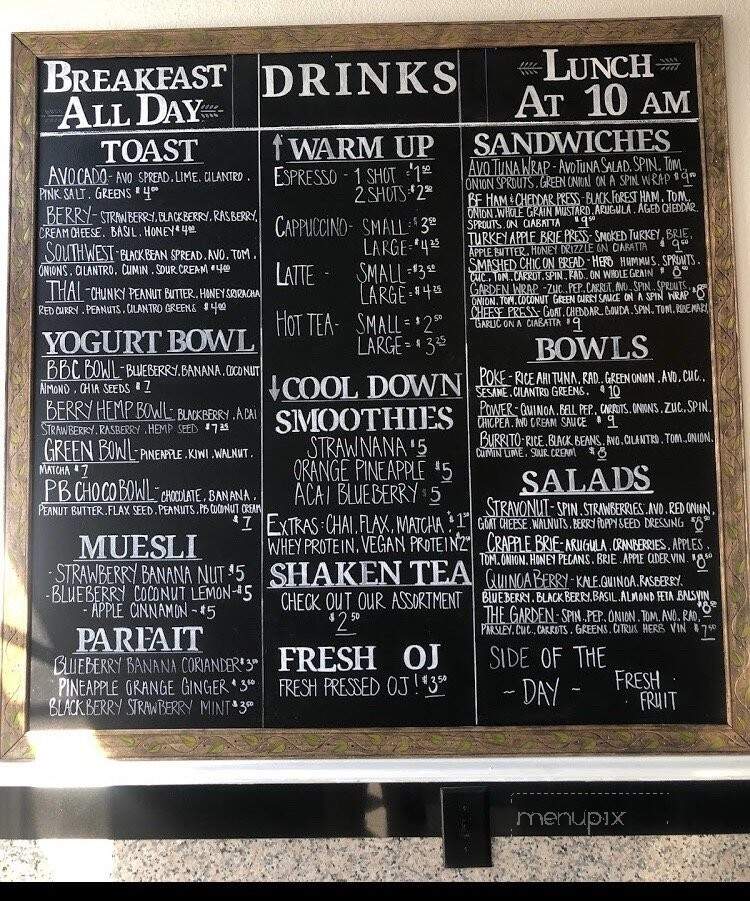 BREAKFAST
ALL DAY
TOAST
AVOCADO - AVO SPREAD. LIME. CILANTRO.
PINK SALT. GREENS $4⁰⁰
BERRY - STRAWBERRY, BLACKBERRY. RASBERRY,
CREAM CHEESE. BASIL. HONEY $4⁰⁰
SOUTHWEST - BLACK BEAN SPREAD. AVO. TOM.
ONIONS. CILANTRO. CUMIN. SOUR CREAM $4⁰⁰
THAI - CHUNKY PEANUT BUTTER. HONEY SRIRACHA
RED CURRY. PEANUTS. CILANTRO GREENS $4⁰⁰
YOGURT BOWL
BBC BOWL - BLUEBERRY. BANANA. COCONUT
ALMOND. CHIA SEEDS $7
BERRY HEMP BOWL - BLACKBERRY. ACAI
STRAWBERRY. RASBERRY. HEMP SEED $7²⁵
GREEN BOWL - PINEAPPLE. KIWI. WALNUT.
MATCHA $7
PB CHOCO BOWL - CHOCOLATE. BANANA.
PEANUT BUTTER. FLAX SEED. PEANUTS. PB COCONUT CREAM
$7
MUESLI
- STRAWBERRY BANANA NUT $5
- BLUEBERRY COCONUT LEMON - $5
- APPLE CINNAMON - $5
PARFAIT
BLUEBERRY BANANA CORIANDER $3⁵⁰
PINEAPPLE ORANGE GINGER $3⁵⁰
BLACKBERRY STRAWBERRY MINT $3⁵⁰
DRINKS
↑ WARM UP
ESPRESSO - 1 SHOT $1⁵⁰
2 SHOTS $2⁵⁰
CAPPUCCINO - SMALL = $3⁵⁰
LARGE = $4²⁵
LATTE - SMALL = $3⁵⁰
LARGE = $4²⁵
HOT TEA - SMALL = $2⁵⁰
LARGE = $3²⁵
↓ COOL DOWN
SMOOTHIES
STRAWNANA $5
ORANGE PINEAPPLE $5
ACAI BLUEBERRY $5
EXTRAS: CHAI, FLAX, MATCHA $1⁵⁰
WHEY PROTEIN, VEGAN PROTEIN 2⁰⁰
SHAKEN TEA
CHECK OUT OUR ASSORTMENT
$2⁵⁰
FRESH OJ
FRESH PRESSED OJ! $3⁵⁰
LUNCH
AT 10 AM
SANDWICHES
AVO TUNA WRAP - AVO TUNA SALAD, SPIN, TOM,
ONION SPROUTS, GREEN ONION ON A SPIN WRAP $9⁵⁰
BF HAM & CHEDDAR PRESS - BLACK FOREST HAM. TOM.
ONION. WHOLE GRAIN MUSTARD. ARUGULA. AGED CHEDDAR.
SPROUTS ON CIABATTA $9⁵⁰
TURKEY APPLE BRIE PRESS - SMOKED TURKEY, BRIE,
APPLE BUTTER, HONEY DRIZZLE ON CIABATTA $9⁵⁰
SMASHED CHIC ON BREAD - HERB HUMMUS, SPROUTS.
CUC, TOM, CARROT, SPIN, RAD. ON WHOLE GRAIN $8⁵⁰
GARDEN WRAP - ZUC, PEP, CARROT, AVO. SPIN. SPROUTS
ONION. TOM, COCONUT GREEN CURRY SAUCE ON A SPIN WRAP $8⁵⁰
CHEESE PRESS - GOAT. CHEDDAR. GOUDA. SPIN. TOM. ROSEMARY,
GARLIC ON A CIABATTA $9
BOWLS
POKE - RICE AHI TUNA, RAD. GREEN ONION. AVO, CUC.
SESAME. CILANTRO GREENS. $10
POWER - QUINOA, BELL PEP, CARROTS. ONIONS. ZUC, SPIN.
CHICPEA. AVO CREAM SAUCE $9
BURRITO - RICE, BLACK BEANS, AVO. CILANTRO. TOM. ONION.
CUMIN LIME. SOUR CREAM $8
SALADS
STRAVONUT - SPIN, STRAWBERRIES, AVO, RED ONION,
GOAT CHEESE. WALNUTS. BERRY POPPY SEED DRESSING $8⁵⁰
CRAPPLE BRIE - ARUGULA, CRANBERRIES, APPLES.
TOM. ONION. HONEY PECANS. BRIE. APPLE CIDER VIN. $8⁵⁰
QUINOA BERRY - KALE. QUINOA, RASBERRY.
BLUEBERRY, BLACKBERRY. BASIL. ALMOND FETA BALSVIN $8⁵⁰
THE GARDEN - SPIN. PEP. ONION. TOM, AVO, RAD,
PARSLEY. CUC. CARROTS. GREENS. CITRUS HERB VIN $7⁵⁰
SIDE OF THE
- DAY - FRESH
FRUIT
menupix